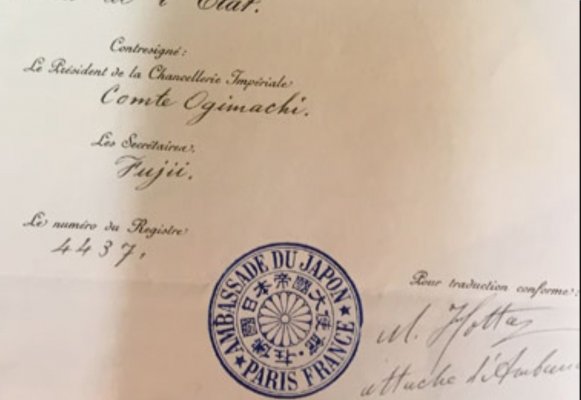 de l'Etat.
Contresigné:
Le Président de la Chancellerie Impériale
Comte Ogimachi.
Les Secrétaires.
Fujii.
Le numéro du Registre
4437.
AMBASSADE DU JAPON
PARIS FRANCE
在佛國日本帝國大使館
Pour traduction conforme:
M. Hotta
attaché